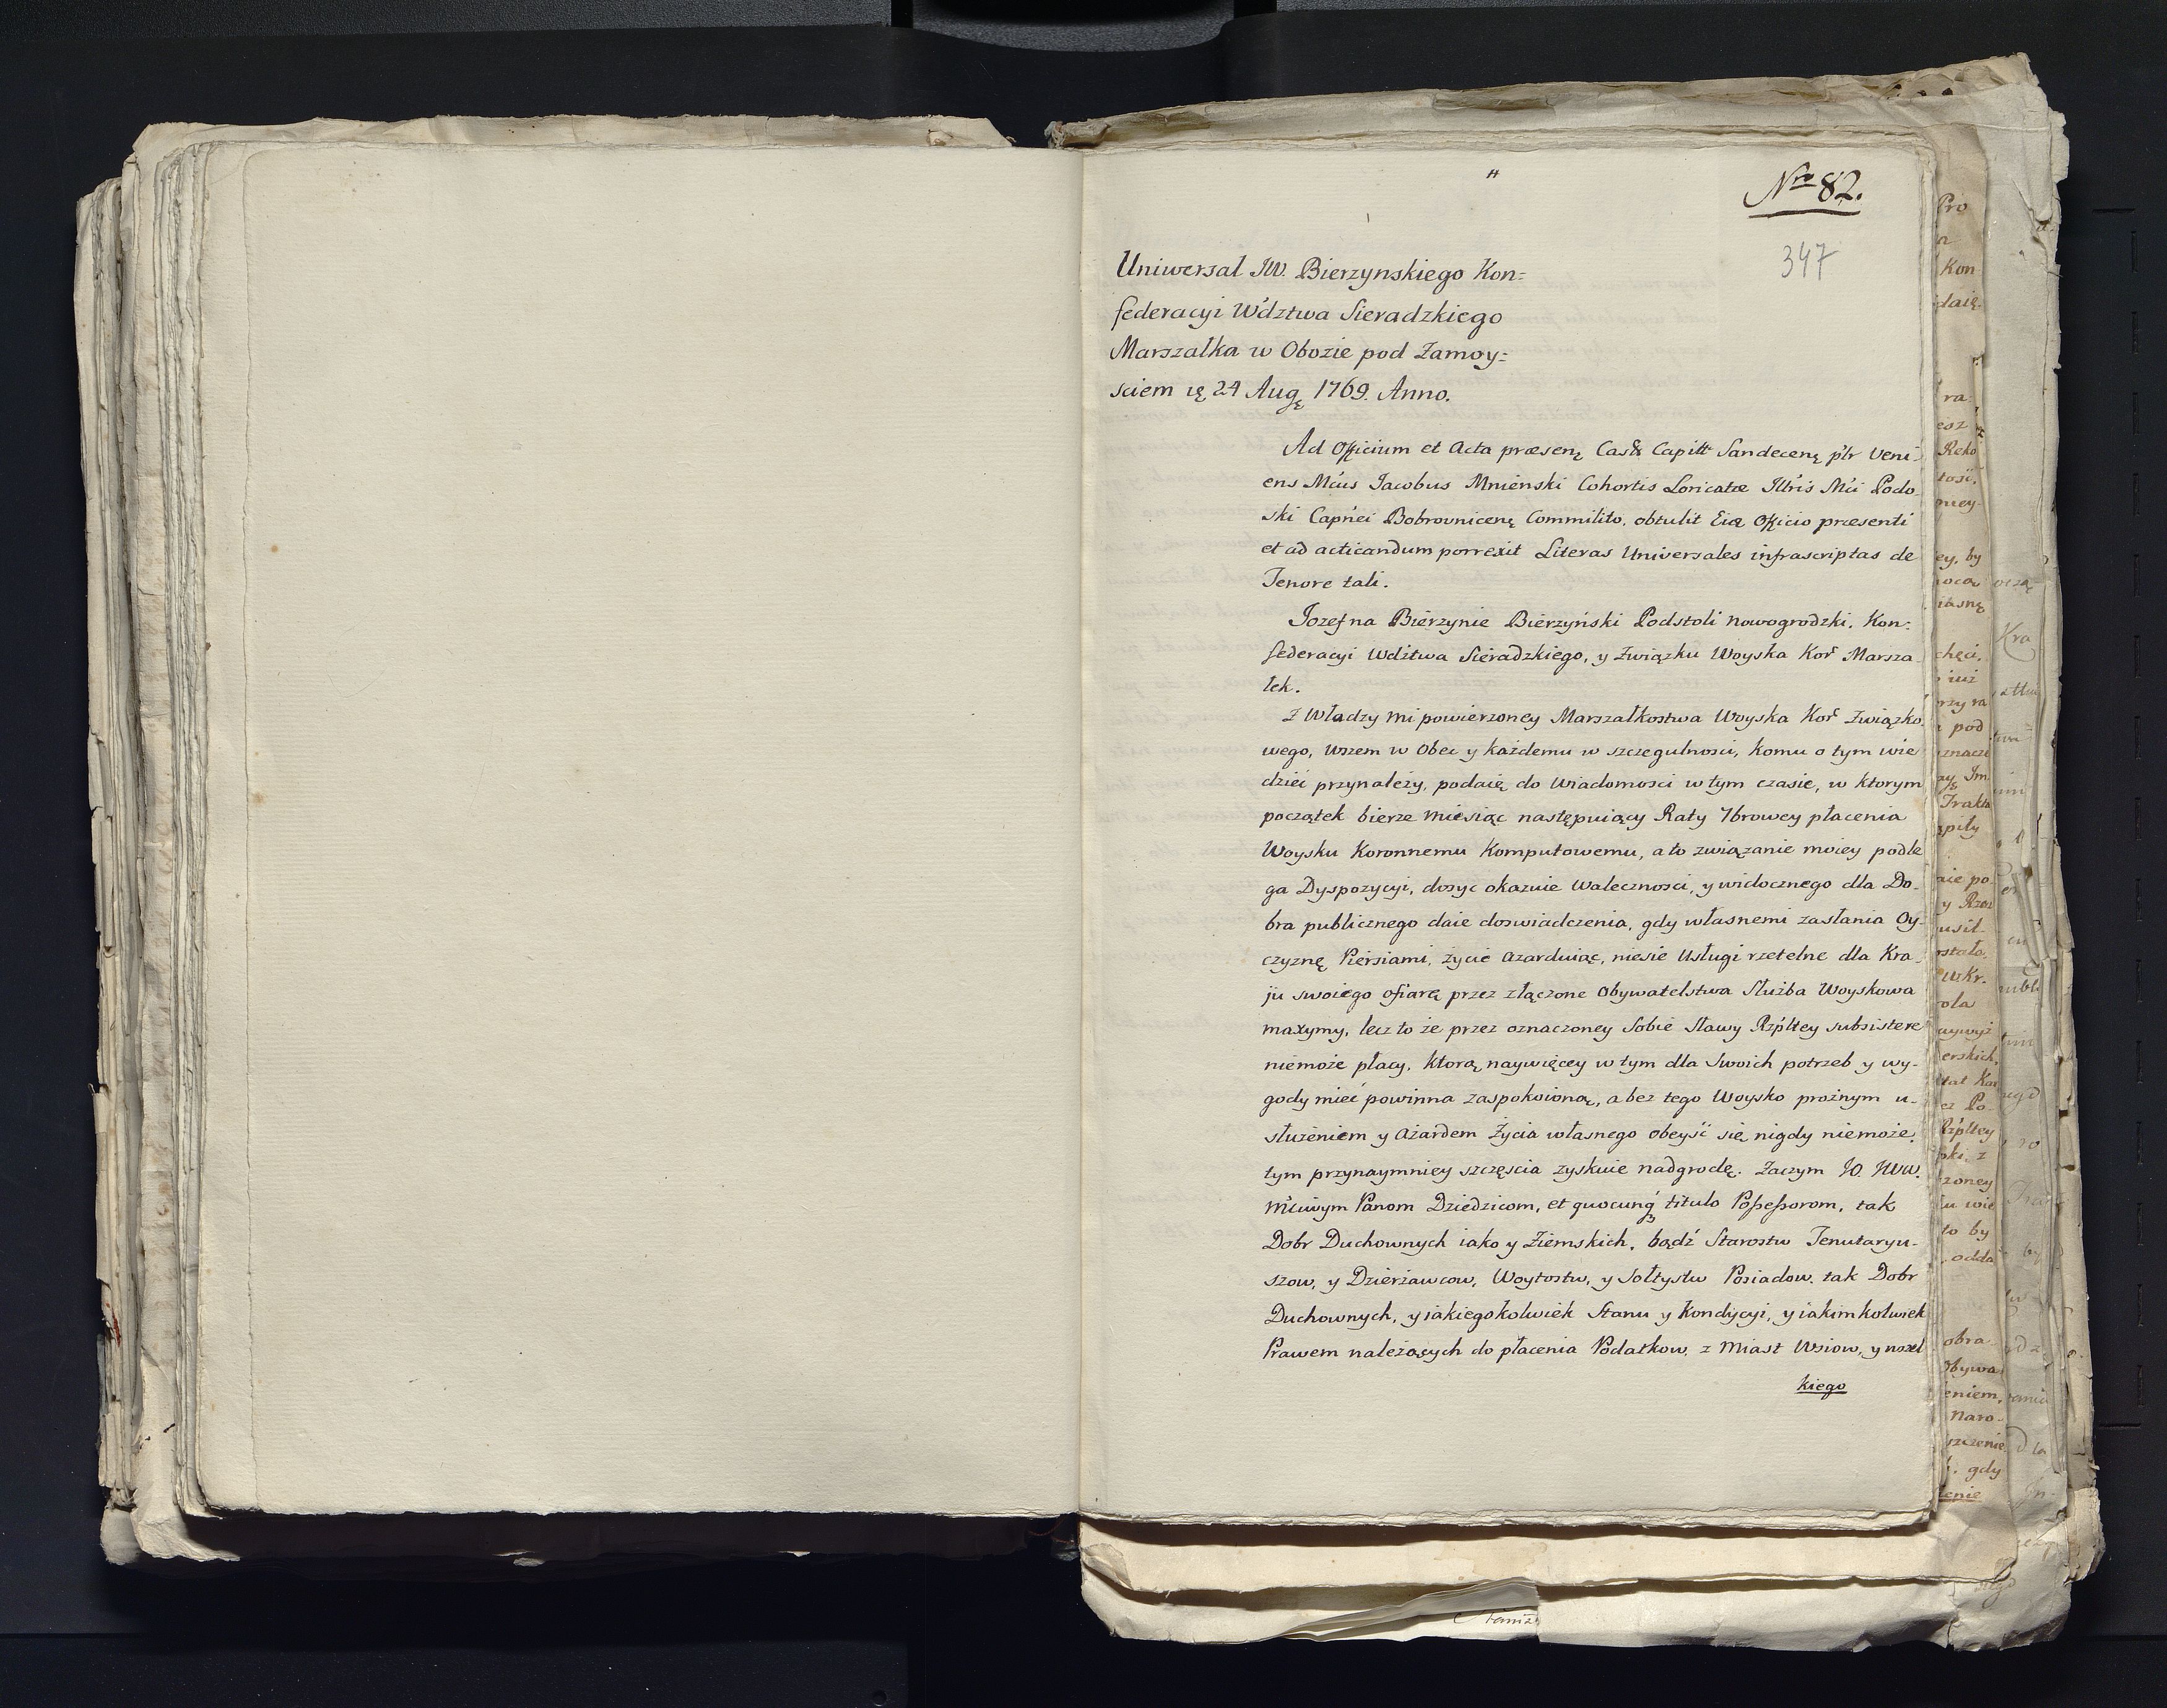 Nro 82.
347
Uniwersal JW. Bierzynskiego Kon=
federacyi Wdztwa Sieradzkiego
Marszałka w Obozie pod Zamoy=
sciem 24 Aug 1769. Anno.
Ad Officium et Acta præsen Castr Capitt Sandecen pltr Veni-
ens Mcus Jacobus Mnienski Cohortis Loricatæ Illris Mci Podo-
ski Capnei Bobrovnicen Commilito, obtulit Officio præsenti
et ad acticandum porrexit Literas Universales infrascriptas de
Tenore tali.
Jozef na Bierzynie Bierzyński Podstoli nowogrodzki. Kon-
federacyi Wdztwa Sieradzkiego, y Związku Woyska Kor Marsza-
łek.
Z Władzy mi powierzoney Marszałkostwa Woyska Kor Związko-
wego, wszem w Obec y każdemu w szczegulnosci, komu o tym wie
dzieć przynależy, podaię do wiadomosci w tym czasie, w ktorym
początek bierze miesiąc następuiący Raty 7browey płacenia
Woysku Koronnemu Komputowemu, a to związanie moiey podle
ga Dyspozycyi, dosyc okazuie Walecznosci, y widocznego dla Do-
bra publicznego daie doswiadczenia, gdy własnemi zasłania Oy-
czyznę Piersiami, życie azarduiąc, niesie Usługi rzetelne dla Kra-
ju swoiego ofiarę przez złączone Obywatelstwa Służba Woyskowa
maxymy, lecz to że przez oznaczoney Sobie Sławy Rzpltey subsistere
niemoże płacy, ktorą naywięcey w tym dla Swoich potrzeb y wy-
gody mieć powinna zaspokoioną, a bez tego Woysko prożnym u-
służeniem y Ażardem Życia własnego obeyść się nigdy niemoże,
tym przynaymniey szczęscia zyskuie nadgrodę. Zaczym JO. JWW.
Mciwym Panom Dziedzicom, et quocunq titulo Possessorom, tak
Dobr Duchownych iako y Ziemskich, bądź Starostw Tenutaryu-
szow, y Dzierżawcow, Woytostw, y Sołtystw Posiadow. tak Dobr
Duchownych, y iakiegokolwiek Stanu y Kondycyi, y iakimkolwiek
Prawem należących do płacenia Podatkow, z Miast Wsiow, y
kiego